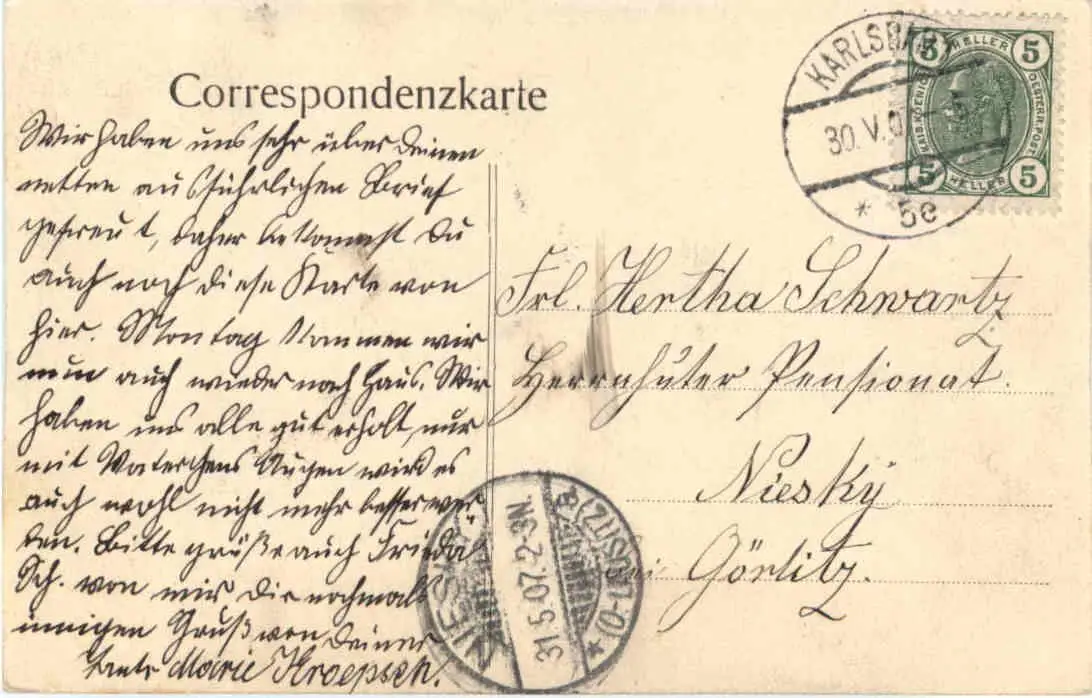 Correspondenzkarte
Wir haben uns sehr über Deinen
netten ausführlichen Brief
gefreut, daher bekommst Du
auch noch diese Karte von
hier. Montag kommen wir
nun auch wieder nach Haus. Wir
haben uns alle gut erholt, nur
mit Vaterchens Augen wird es
auch wohl nicht mehr besser wer
den. Bitte grüße auch Frieda
Sch. von mir Dir nochmals
innigen Gruß von Deiner
Tante Marie
KARLSBAD
30. V. 0
* 5e
5 HELLER 5
KAIS. KOENIGL. OESTERR. POST
5 HELLER 5
Frl. Hertha Schwartz
Herrnhüter Pensionat.
Niesky
bei Görlitz.
NIESKY
31.5.07. 2-3N.
* (O-LAUSITZ) a